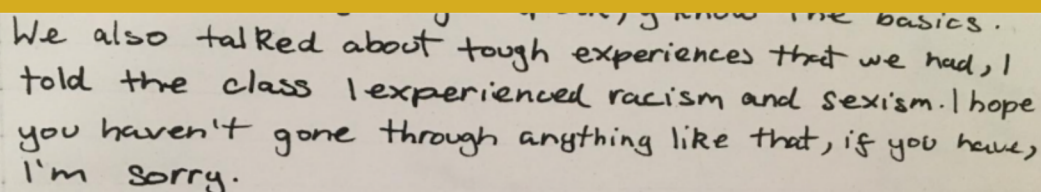 know the basics.
We also talked about tough experiences that we had, I
told the class I experienced racism and sexism. I hope
you haven't gone through anything like that, if you have,
I'm sorry.